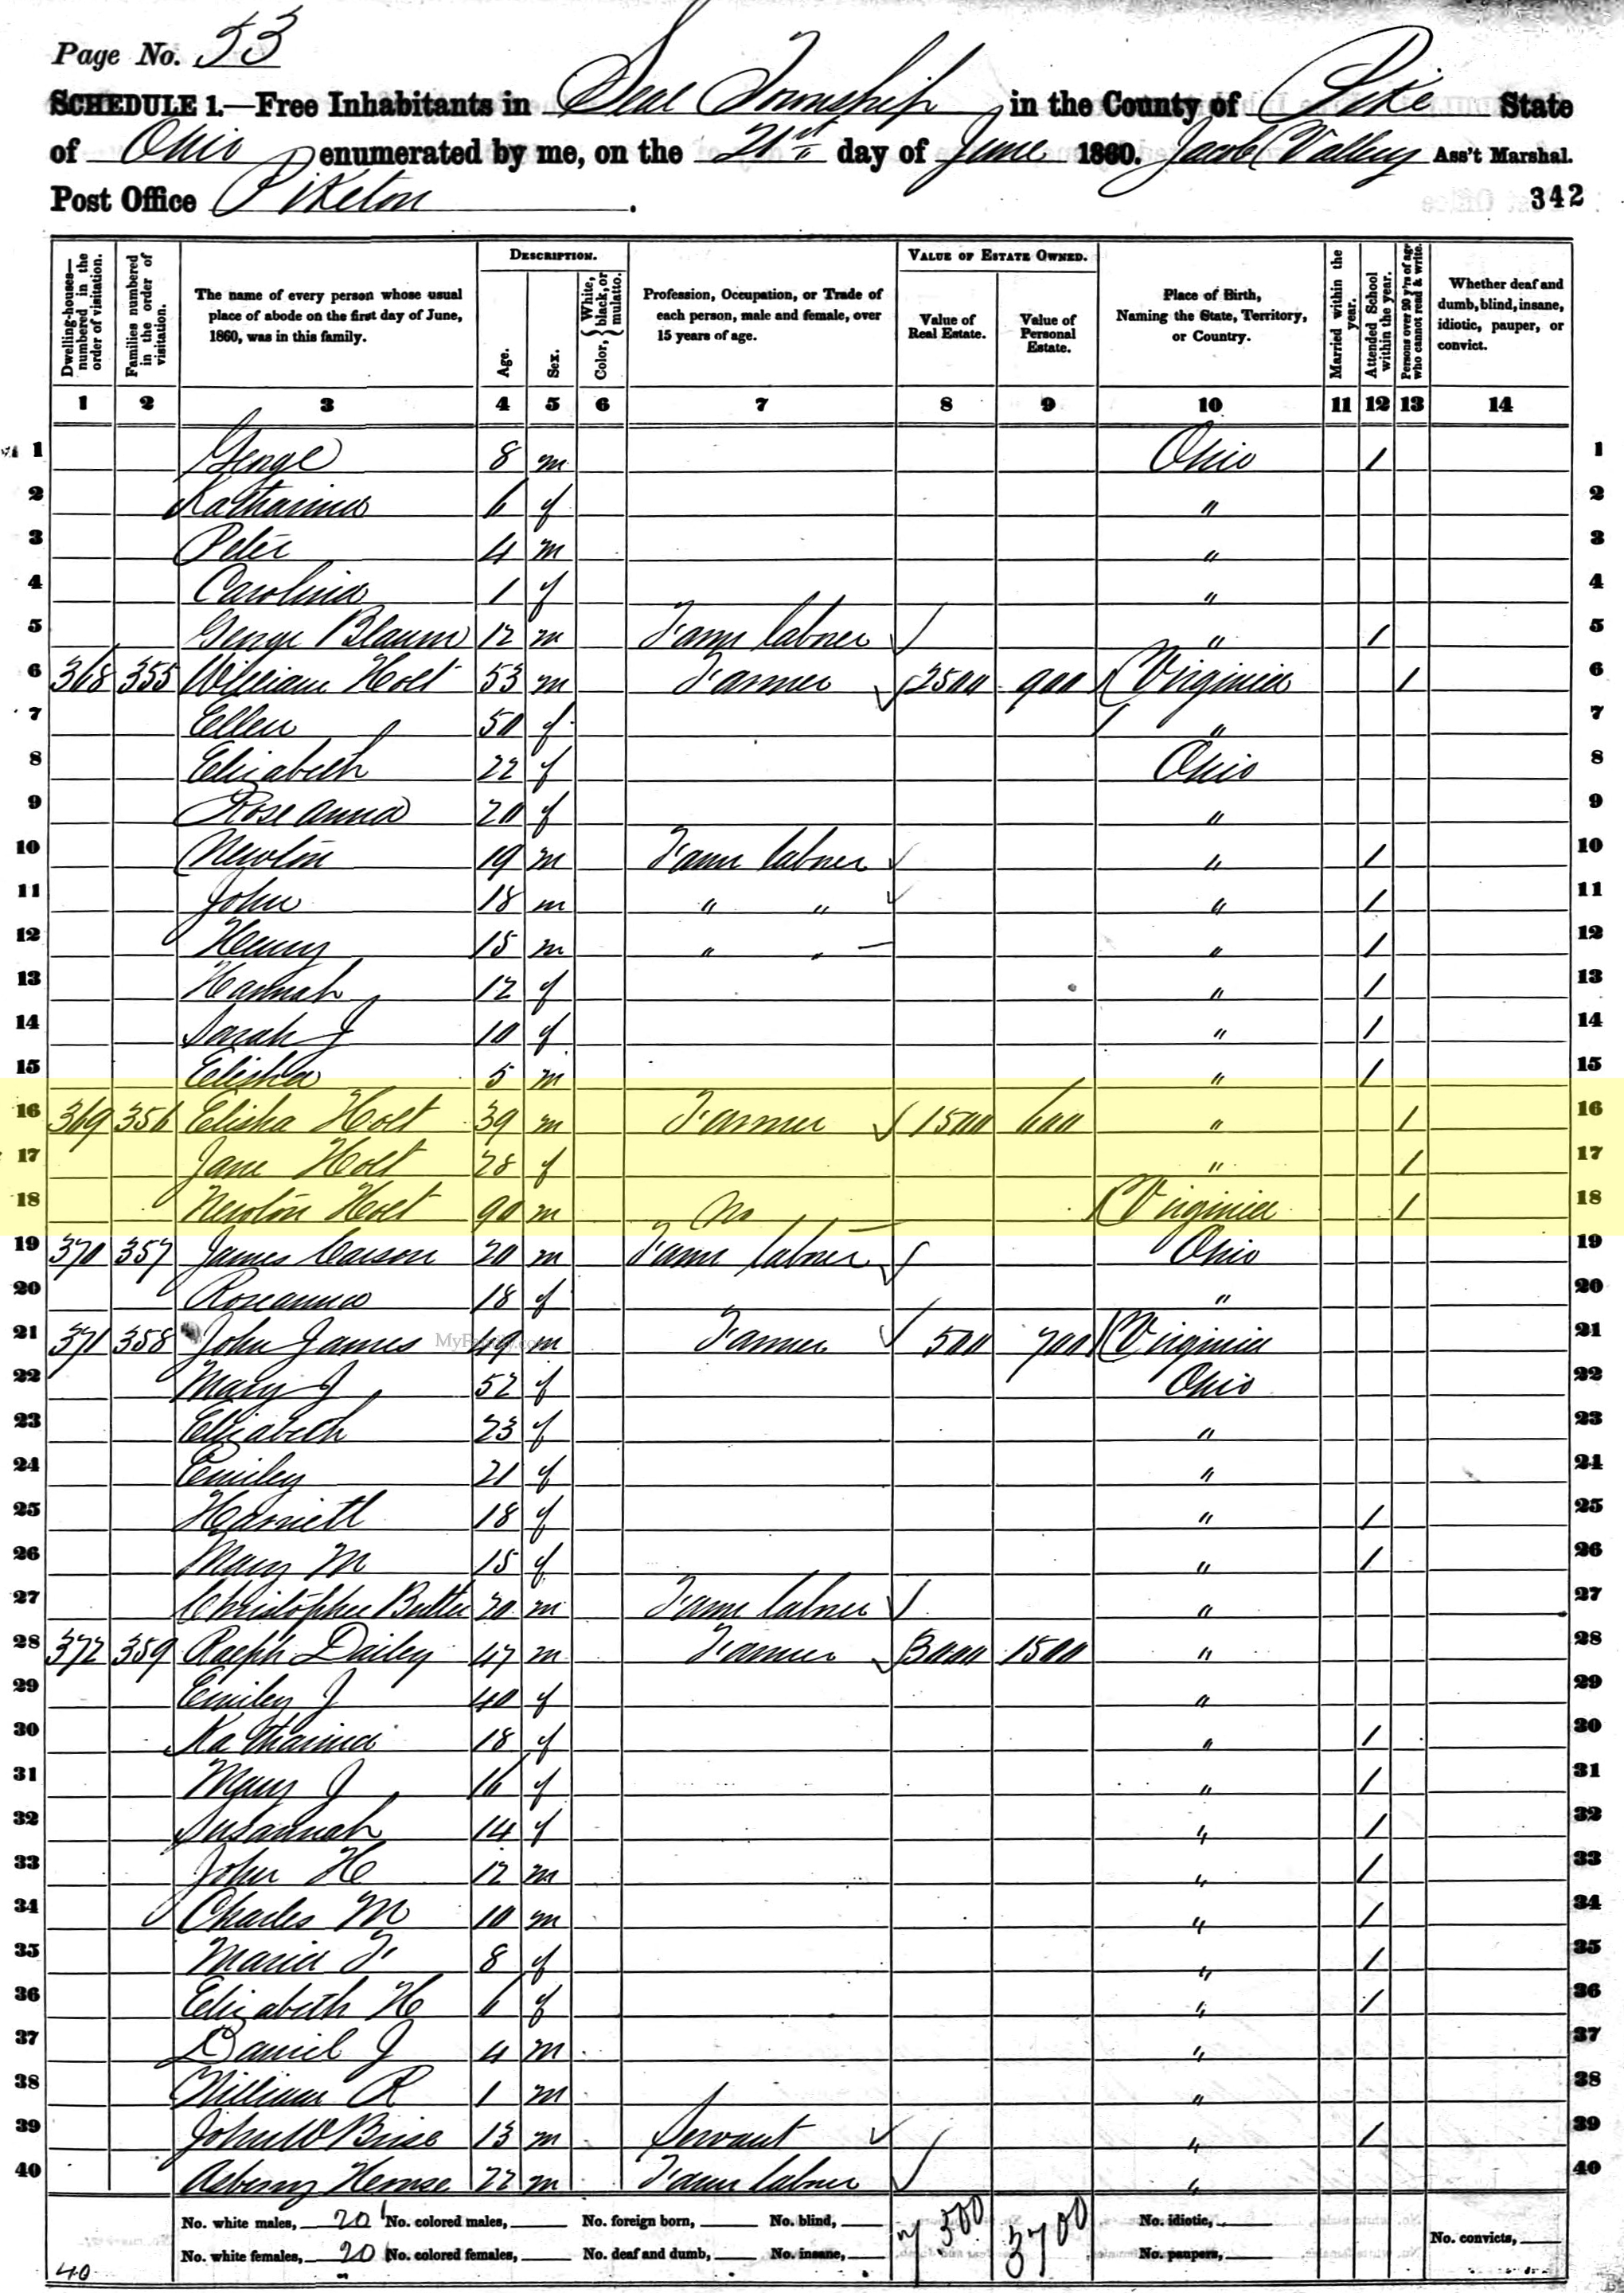 Page No. 53
SCHEDULE 1.—Free Inhabitants in Seal Township in the County of Pike State
of Ohio enumerated by me, on the 21st day of June 1860. Jacob Valley Ass't Marshal.
Post Office Piketon. 342
Dwelling-houses—numbered in the order of visitation.
Families numbered in the order of visitation.
The name of every person whose usual place of abode on the first day of June, 1860, was in this family.
DESCRIPTION.
Age.
Sex.
Color, {White, black, or mulatto.
Profession, Occupation, or Trade of each person, male and female, over 15 years of age.
VALUE OF ESTATE OWNED.
Value of Real Estate.
Value of Personal Estate.
Place of Birth, Naming the State, Territory, or Country.
Married within the year.
Attended School within the year.
Persons over 20 y'rs of age who cannot read & write.
Whether deaf and dumb, blind, insane, idiotic, pauper, or convict.
1 2 3 4 5 6 7 8 9 10 11 12 13 14
1 George 8 m Ohio / 1
2 Katharina 6 f " 2
3 Peter 4 m " 3
4 Carolina 1 f " 4
5 George Blaum 12 m Farm labner " / 5
6 368 355 William Holt 53 m Farmer 2500 900 Virginia / 6
7 Ellen 50 f " 7
8 Elizabeth 22 f Ohio 8
9 Rose anna 20 f " 9
10 Newton 19 m Farm labner " / 10
11 John 18 m " " " / 11
12 Henry 15 m " " " / 12
13 Hannah 12 f " / 13
14 Sarah J 10 f " / 14
15 Elisha 5 m " / 15
16 369 356 Elisha Holt 39 m Farmer 1500 600 " / 16
17 Jane Holt 28 f " / 17
18 Newton Holt 90 m No Virginia / 18
19 370 357 James Carson 20 m Farm labner Ohio 19
20 Roseanna 18 f " 20
21 371 358 John James 49 m Farmer 500 700 Virginia 21
MyFamily.com
22 Mary J 52 f Ohio 22
23 Elizabeth 23 f " 23
24 Emiley 21 f " 24
25 Harriett 18 f " / 25
26 Mary M 15 f " / 26
27 Christopher Butler 20 m Farm labner " 27
28 372 359 Ralph Dailey 47 m Farmer 3000 1500 " 28
29 Emiley J 40 f " 29
30 Katharina 18 f " / 30
31 Mary J 16 f " / 31
32 Susannah 14 f " / 32
33 John H 12 m " / 33
34 Charles M 10 m " / 34
35 Maria F 8 f " / 35
36 Elizabeth H 6 f " / 36
37 Daniel J 4 m " 37
38 William R 1 m " 38
39 John W 13 m Servant " / 39
40 22 m Farm labner " 40
No. white males, 20 No. colored males, No. foreign born, No. blind, 7500 3700 No. idiotic,
No. white females, 20 No. colored females, No. deaf and dumb, No. insane, No. paupers, No. convicts,
40